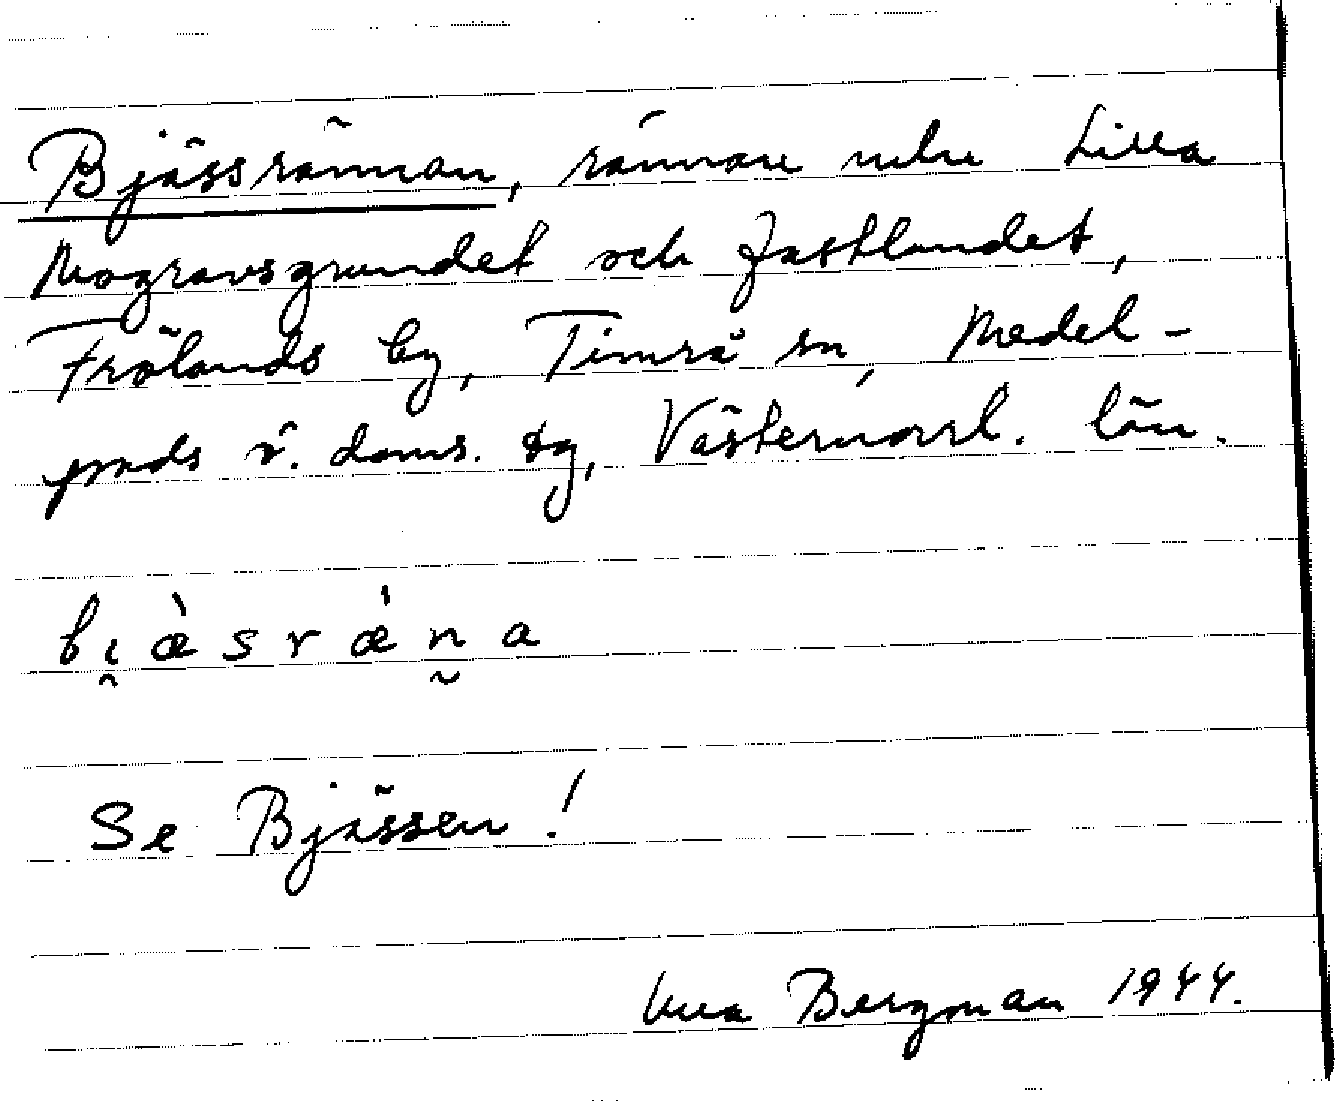 Bjässrännan, rännan mln Lilla
Mogravsgrundet och fastlandet,
Frölands by, Timrå sn, Medel-
pads ö. doms. tg, Västernorrl. län.
bi̯æ̀sræ̀n̰a
Se Bjässen!
Bergman 1944.